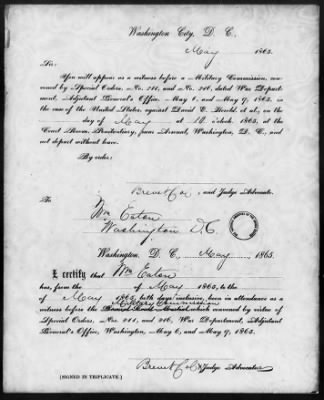 Washington City, D. C.,
May 1865.
Sir:
You will appear as a witness before a Military Commission, convened
by Special Orders, No. 211, and No. 216, dated War Department,
Adjutant General's Office, May 6, and May 9, 1865, in
the case of the United States, against David E. Herold, et al., on the
day of May at 10 o'clock, 1865, at the
Court Room, Penitentiary, from Arsenal, Washington, D. C., and
not depart without leave.
By order:
Brevet Col, and Judge Advocate.
To
Wm Eaton
Washington D.C.
Washington, D. C., May 1865.
I certify that Wm Eaton
has, from the of May 1865, to the
of May 1865, both days inclusive, been in attendance as a
Military Commission
witness before the convened by virtue of
Special Orders, Nos. 211, and 216, War Department, Adjutant
General's Office, Washington, May 6, and May 9, 1865.
Brevet Col & Judge Advocate
(SIGNED IN TRIPLICATE.)